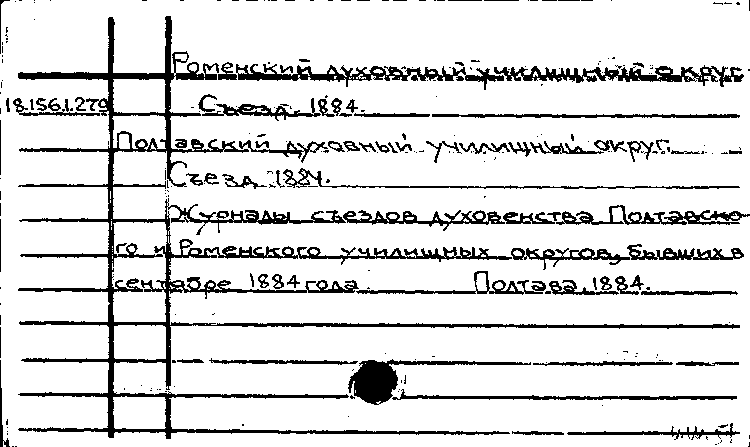 Роменский духовный училищный округ
18.156.1.279 Съезд. 1884.
Полтавский духовный училищный округ.
Съезд. 1884.
Журналы съездов духовенства Полтавско-
го и Роменского училищных округов, бывших в
сентябре 1884 года. Полтава, 1884.